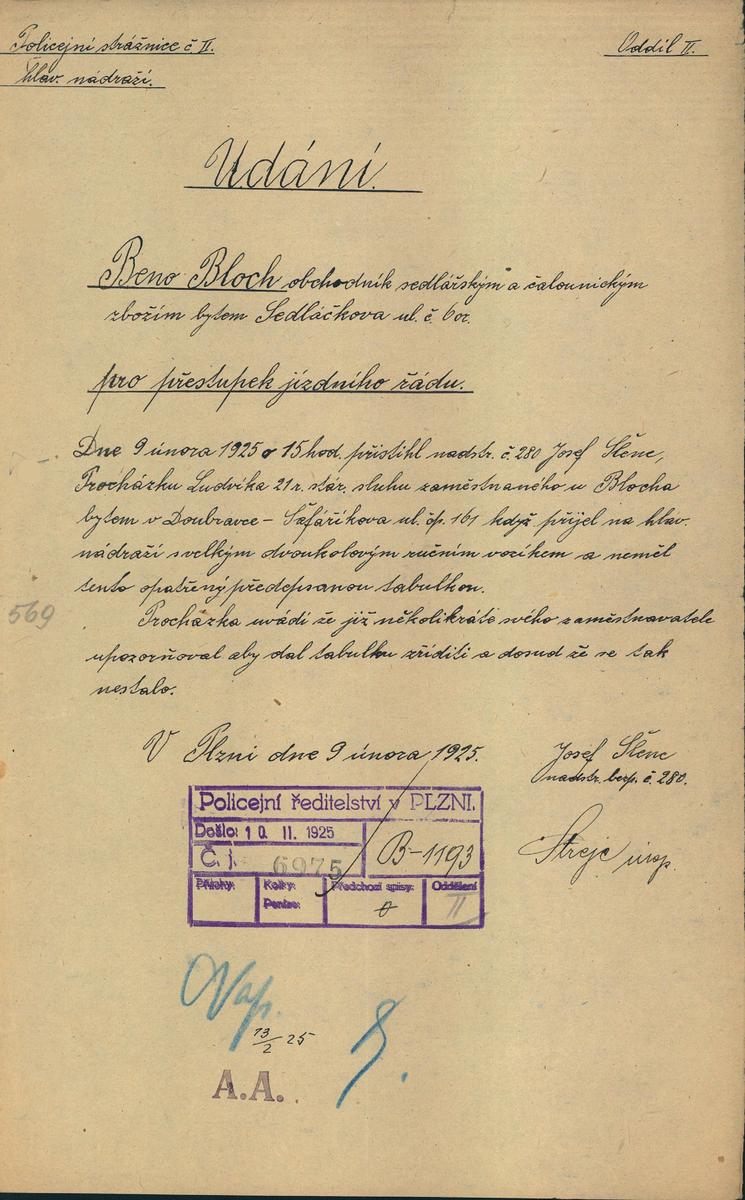 Policejní strážnice č. II.
hlav. nádraží.
Oddíl II.
Udání.
Beno Bloch obchodník sedlářským a čalounickým
zbožím bytem Sedláčkova ul. č. 6 or.
pro přestupek jízdního řádu.
Dne 9 února 1925 o 15 hod. přistihl nadstr. č. 280 Josef
Procházku Ludvíka 21 r. stár. sluhu zaměstnaného u Blocha
bytem v Doubravce – Šafaříkova ul. čp. 161 když přijel na hlav.
nádraží s velkým dvoukolovým ručním vozíkem a neměl
tento opatřený předepsanou tabulkou.
569
Procházka uvádí že již několikráte svého zaměstnavatele
upozorňoval aby dal tabulku zříditi a dosud že se tak
nestalo.
V Plzni dne 9 února 1925.
Josef
nadstr. bezp. č. 280.
Policejní ředitelství v PLZNI.
Došlo: 10 II. 1925
Č. j. 6975
B-1193
Přílohy:
Kolky:
Peníze:
Předchozí spisy:
0
Oddělení
II
insp.
13/2 25
A.A.